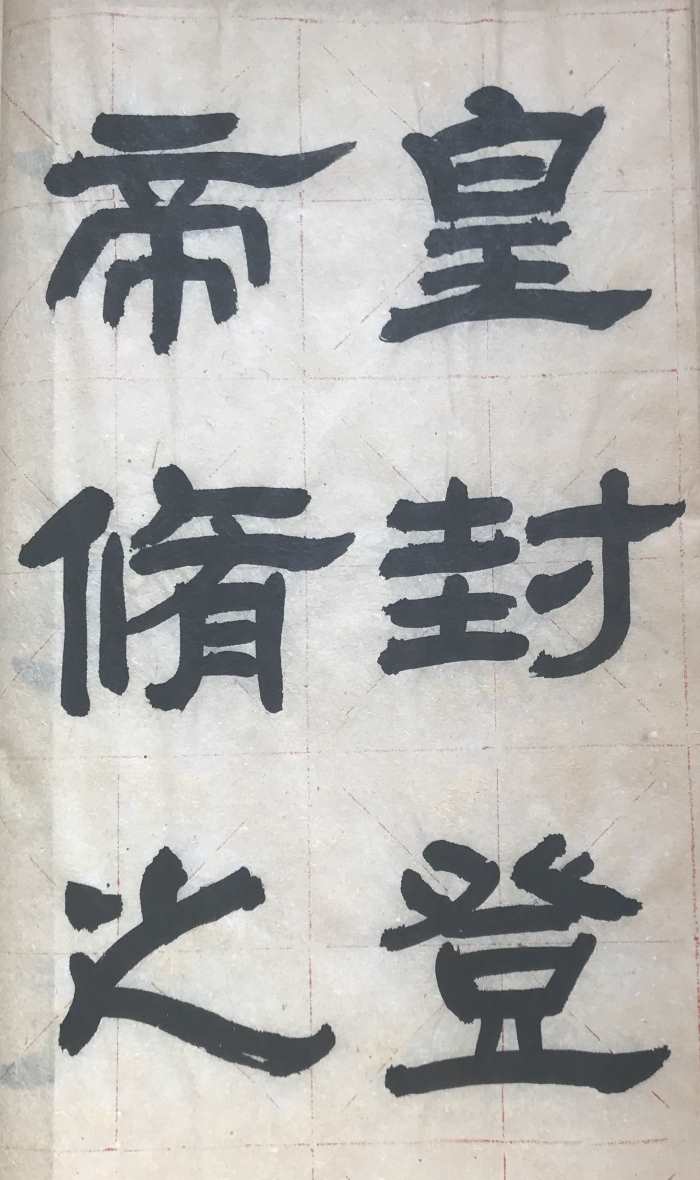 皇封登
帝脩之